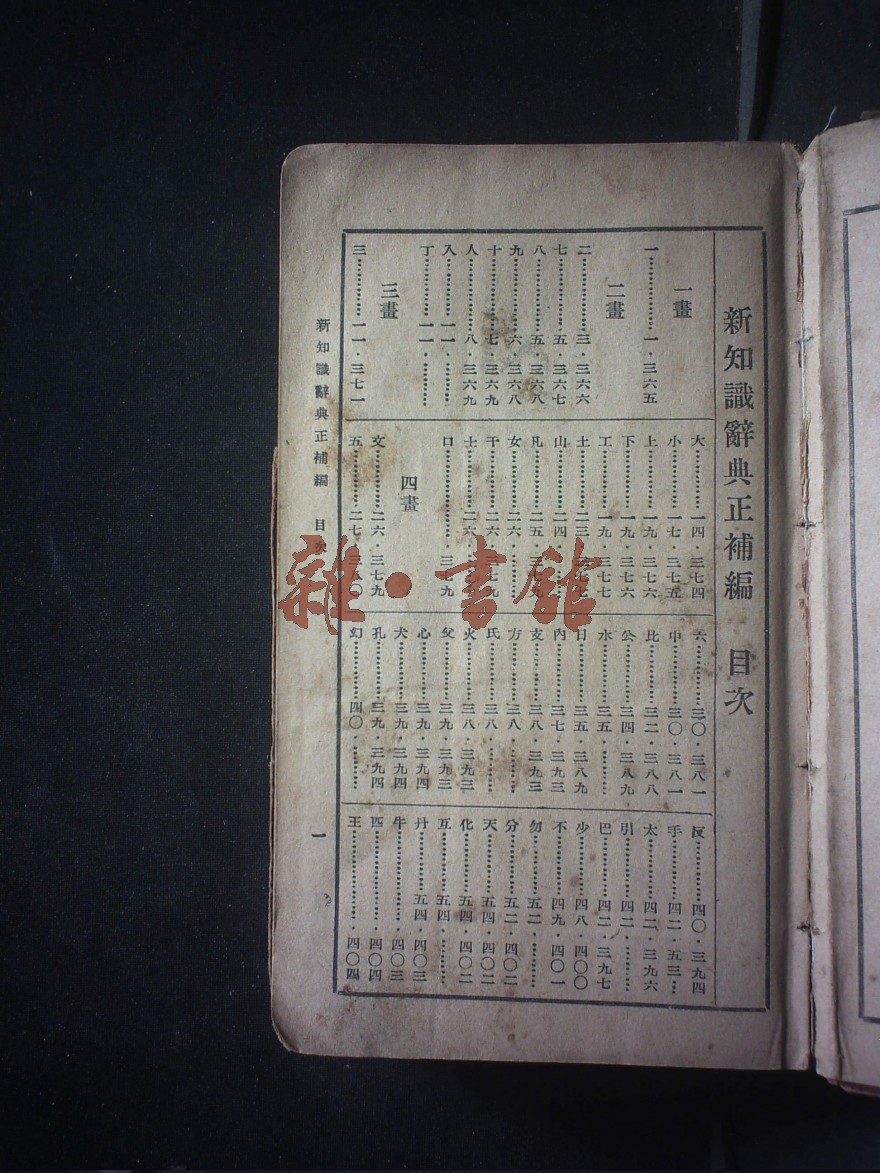 新知識辭典正補編　目次
一畫
一……………一・三六五
二畫
二……………三・三六六
七……………五・三六七
八……………五・三六八
九……………六・三六八
十……………七・三六九
人……………八・三六九
入……………一一・………
丁……………一一・………
三畫
三……………一一・三七一
大……………一四・三七四
小……………一七・三七五
上……………一九・三七六
下……………一九・三七六
工……………一九・三七七
土……………二三・三七七
山……………二四・
凡……………二五・三七九
女……………二六・………
干……………二六・三七九
士……………二六・
口……………・三七九
四畫
文……………二六・三七九
五……………二七・三八〇
六……………三〇・三八一
中……………三〇・三八一
比……………三二・三八八
公……………三四・三八九
水……………三五・………
日……………三五・三八九
內……………三七・三九三
支……………三八・三九三
方……………三八・………
氏……………三八・………
火……………三八・三九三
父……………三九・三九三
心……………三九・三九四
犬……………三九・三九四
孔……………三九・三九四
幻……………四〇・………
反……………四〇・三九四
手……………四二・五三…
太……………四二・三九六
引……………四二・………
巴……………四二・三九七
少……………四八・四〇〇
不……………四九・四〇一
勿……………五二・………
分……………五二・四〇二
天……………五四・四〇二
化……………五四・四〇二
互……………五四・………
丹……………五四・四〇三
牛……………・四〇三
四……………・四〇四
王……………・四〇四
新知識辭典正補編　目次
一
雜・書館